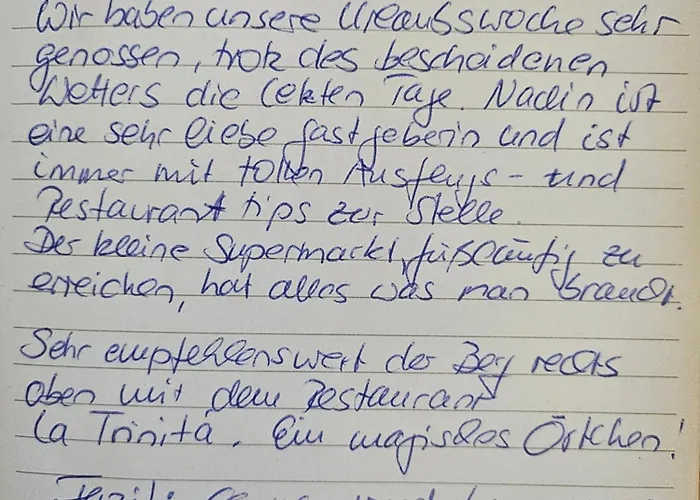 Wir haben unsere Urlaubswoche sehr
genossen, trotz des bescheidenen
Wetters die letzten Tage. Nadin ist
eine sehr liebe Gastgeberin und ist
immer mit tollen Ausflugs- und
Restaurant tips zur Stelle.
Der kleine Supermarkt, fußläufig zu
erreichen, hat alles was man braucht.
Sehr empfehlenswert der Berg rechts
oben mit dem Restaurant
La Trinità. Ein magisches Örtchen!